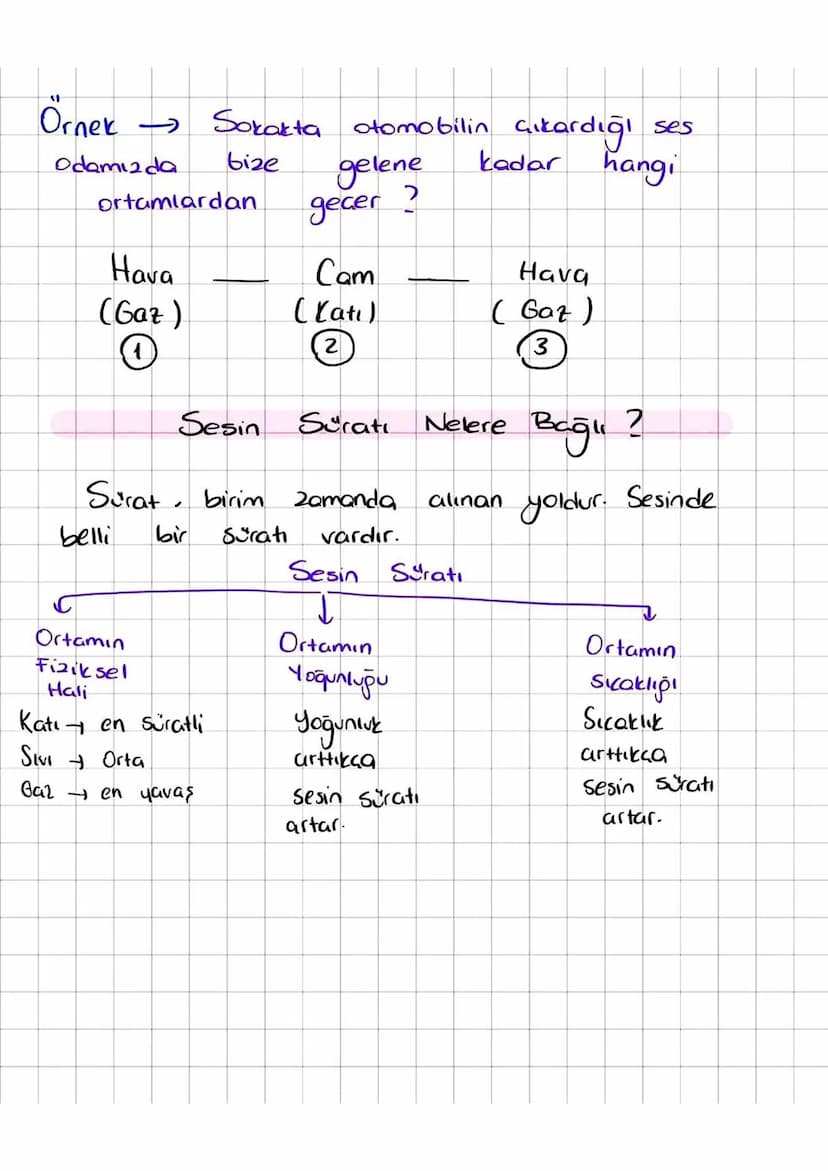 Örnek → Sokakta otomobilin çıkardığı ses
odamızda bize gelene kadar hangi
ortamlardan geçer ?
Hava — Cam — Hava
(Gaz) (Katı) (Gaz)
1 2 3
Sesin Sürati Nelere Bağlı ?
Sürat, birim zamanda alınan yoldur. Sesinde
belli bir sürati vardır.
Sesin Sürati
Ortamın
Fiziksel
Hali
Katı → en süratli
Sıvı → Orta
Gaz → en yavaş
Ortamın
Yoğunluğu
Yoğunluk
arttıkça
sesin sürati
artar.
Ortamın
Sıcaklığı
Sıcaklık
arttıkça
sesin sürati
artar.